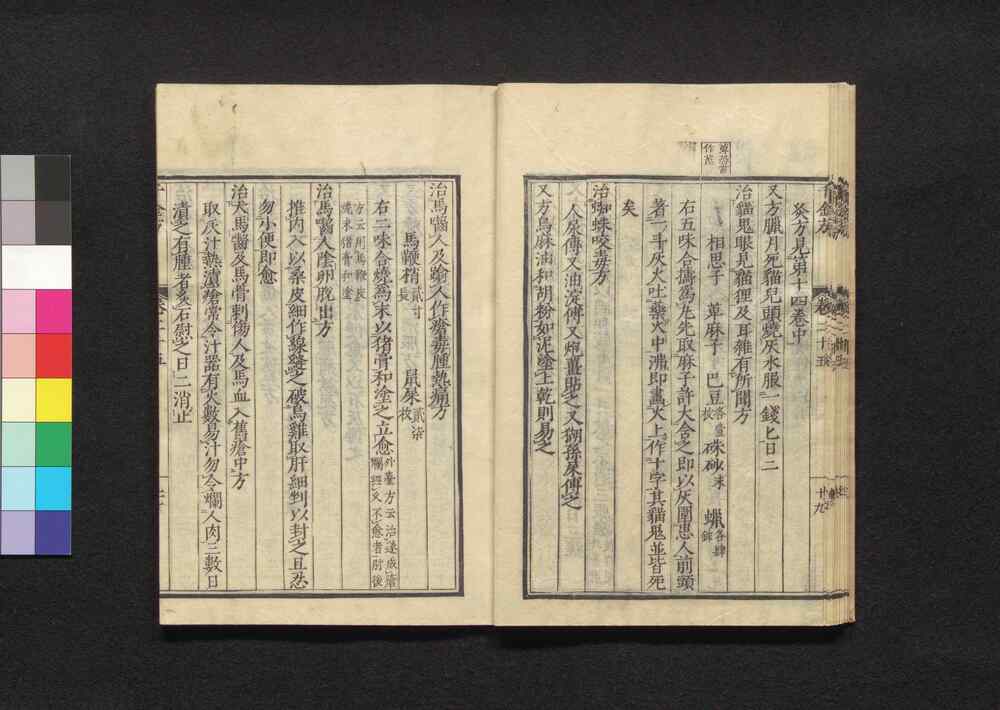 萆當
作蓖
炙方見第十四卷中
又方臘月死貓兒頭燒灰水服一錢匕日二
治貓鬼眼見貓狸及耳雜有所聞方
相思子 萆麻子 巴豆各壹枚 硃砂末 蠟各肆銖
右五味合擣爲丸先取麻子許大含之即以灰圍患人前頭
著一斗灰火吐藥火中沸即畫火上作十字其貓鬼並皆死
矣
治蜘蛛咬毒方
人尿傅又油淀傅又炮薑貼之又猢孫屎傅之
又方烏麻油和胡粉如泥塗上乾則易之
治馬嚙人及蹹人作瘡毒腫熱痛方
馬鞭稍貳寸長 鼠屎貳柒枚
右二味合燒爲末以猪膏和塗之立愈外臺方云治遂成瘡爛經久不愈者肘後
方云用馬鞭皮燒末猪膏和塗
治馬嚙人陰卵脫出方
推内入以桑皮細作線縫之破烏雞取肝細剉以封之且忍
勿小便即愈
治犬馬嚙及馬骨刺傷人及馬血入舊瘡中方
取灰汁熱漬瘡常令汁器有火數易汁勿令爛人肉三數日
漬之有腫者炙石熨之日二消止